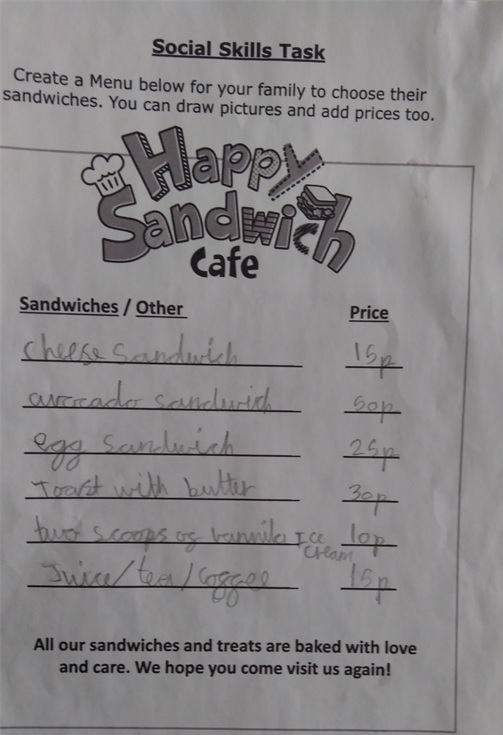 Social Skills Task
Create a Menu below for your family to choose their
sandwiches. You can draw pictures and add prices too.
Happy
Sandwich
Cafe
Sandwiches / Other Price
cheese sandwich 15p
avocado sandwich 50p
egg sandwich 25p
Toast with butter 30p
two scoops of vannila Ice 10p
Cream
Juice/tea/coffee 15p
All our sandwiches and treats are baked with love
and care. We hope you come visit us again!